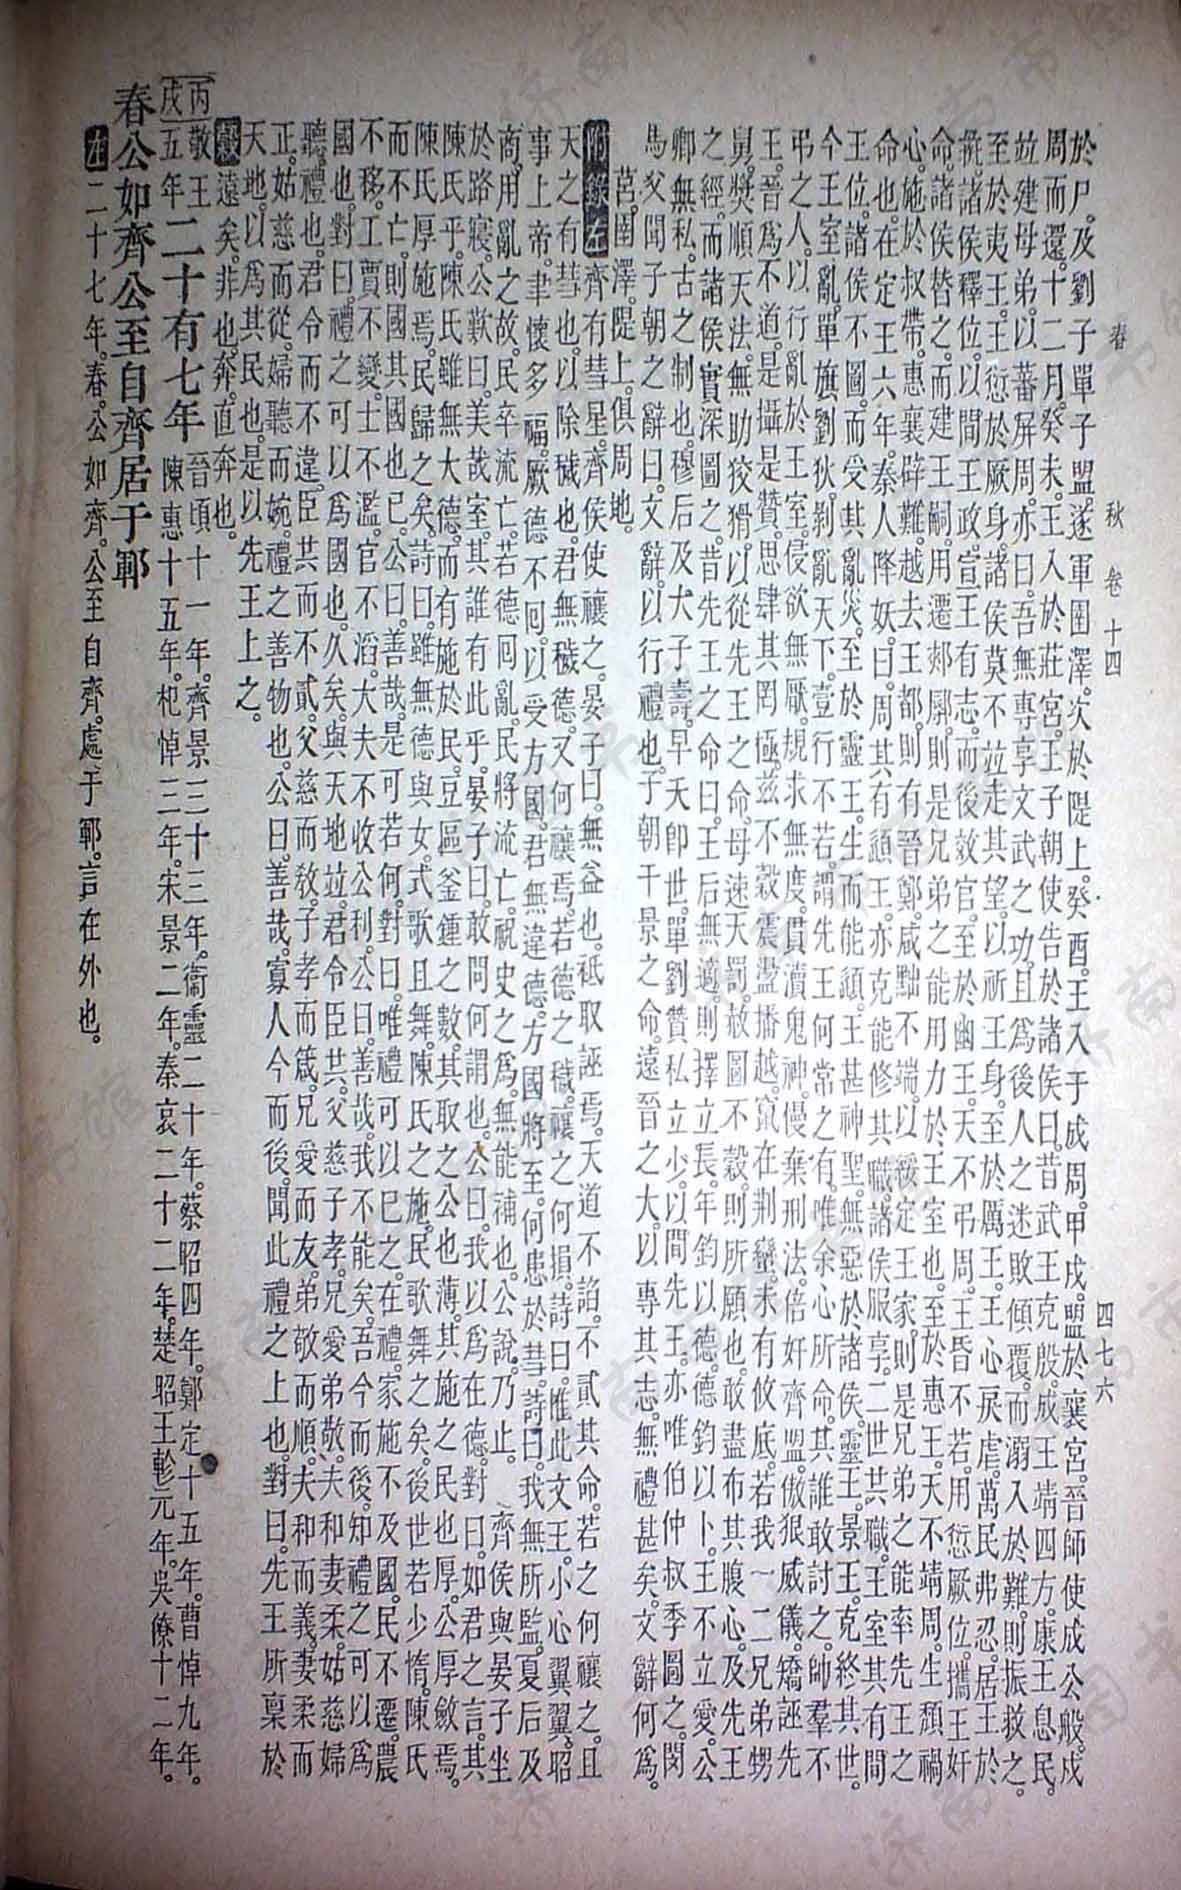 春　秋　卷十四　四七六
於尸。及劉子單子盟。遂軍圉澤。次於隄上。癸酉。王入于成周。甲戌。盟於襄宮。晉師使成公般。戍
周而還。十二月。癸未。王入於莊宮。王子朝使告於諸侯曰。昔武王克殷。成王靖四方。康王息民。
竝建母弟。以蕃屏周。亦曰。吾無專享文武之功。且爲後人之迷敗傾覆。而溺入於難。則振救之。
至於夷王。王愆於厥身。諸侯莫不竝走其望。以祈王身。至於厲王。王心戾虐。萬民弗忍。居王於
彘。諸侯釋位。以間王政。宣王有志。而後效官。至於幽王。天不弔周。王昏不若。用愆厥位。攜王奸
命。諸侯替之。而建王嗣。用遷郟鄏。則是兄弟之能用力於王室也。至於惠王。天不靖周。生頹禍
心。施於叔帶。惠襄辟難。越去王都。則有晉鄭。咸黜不端。以綏定王家。則是兄弟之能率先王之
命也。在定王六年。秦人降妖。曰。周其有頿王。亦克能修其職。諸侯服享。二世共職。王室其有間
王位。諸侯不圖。而受其亂災。至於靈王。生而能頿。王甚神聖。無惡於諸侯。靈王景王。克終其世。
今王室亂。單旗劉狄。剝亂天下。壹行不若。謂先王何常之有。唯余心所命。其誰敢討之。帥羣不
弔之人。以行亂於王室。侵欲無厭。規求無度。貫瀆鬼神。慢棄刑法。倍奸齊盟。傲狠威儀。矯誣先
王。晉爲不道。是攝是贊。思肆其罔極。茲不穀震盪播越。竄在荆蠻。未有攸底。若我一二兄弟甥
舅。獎順天法。無助狡猾。以從先王之命。毋速天罰。赦圖不穀。則所願也。敢盡布其腹心。及先王
之經。而諸侯實深圖之。昔先王之命曰。王后無適。則擇立長。年鈞以德。德鈞以卜。王不立愛。公
卿無私。古之制也。穆后及大子壽。早夭卽世。單劉贊私立少。以間先王。亦唯伯仲叔季圖之。閔
馬父聞子朝之辭曰。文辭。以行禮也。子朝干景之命。遠晉之大。以專其志。無禮甚矣。文辭何爲。
莒。圉澤。隄上。俱周地。
附錄左 齊有彗星。齊侯使禳之。晏子曰。無益也。祗取誣焉。天道不謟。不貳其命。若之何禳之。且
天之有彗也。以除穢也。君無穢德。又何禳焉。若德之穢。禳之何損。詩曰。惟此文王。小心翼翼。昭
事上帝。聿懷多福。厥德不回。以受方國。君無違德。方國將至。何患於彗。詩曰。我無所監。夏后及
商。用亂之故。民卒流亡。若德回亂。民將流亡。祝史之爲。無能補也。公說。乃止。　齊侯與晏子坐
於路寢。公歎曰。美哉室。其誰有此乎。晏子曰。敢問何謂也。公曰。我以爲在德。對曰。如君之言。其
陳氏乎。陳氏雖無大德。而有施於民。豆區釜鍾之數。其取之公也薄。其施之民也厚。公厚斂焉。
陳氏厚施焉。民歸之矣。詩曰。雖無德與女。式歌且舞。陳氏之施。民歌舞之矣。後世若少惰。陳氏
而不亡。則國其國也已。公曰。善哉。是可若何。對曰。唯禮可以已之。在禮。家施不及國。民不遷。農
不移。工賈不變。士不濫。官不滔。大夫不收公利。公曰。善哉。我不能矣。吾今而後。知禮之可以爲
國也。對曰。禮之可以爲國也。久矣。與天地竝。君令臣共。父慈子孝。兄愛弟敬。夫和妻柔。姑慈婦
聽。禮也。君令而不違。臣共而不貳。父慈而敎。子孝而箴。兄愛而友。弟敬而順。夫和而義。妻柔而
正。姑慈而從。婦聽而婉。禮之善物也。公曰。善哉。寡人今而後。聞此禮之上也。對曰。先王所稟於
天地。以爲其民也。是以先王上之。
穀 遠矣。非也。奔。直奔也。
丙戌 敬王五年 二十有七年 晉頃十一年。齊景三十三年。衞靈二十年。蔡昭四年。鄭定十五年。曹悼九年。
陳惠十五年。杞悼三年。宋景二年。秦哀二十二年。楚昭王軫元年。吳僚十二年。
春公如齊公至自齊居于鄆
左 二十七年。春。公如齊。公至自齊。處于鄆。言在外也。